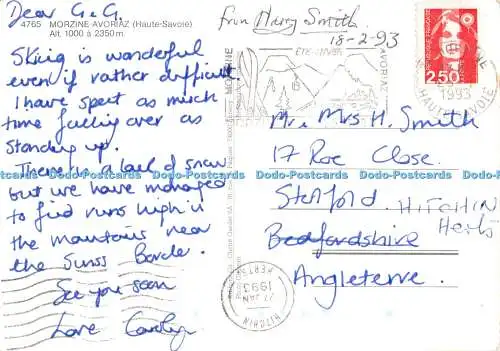 4765 MORZINE AVORIAZ (Haute-Savoie)
Alt. 1000 à 2350 m.
Dear G & G.
Skiing is wonderful
even if rather difficult!
I have spent as much
time falling over as
standing up.
There is a lack of snow
but we have managed
to find runs high in
the mountains near
the Swiss Border.
See you soon
Love Carolyn
from Mary Smith
18-2-93
MORZINE
AVORIAZ
ÉTÉ-HIVER
1993
HAUTE SAVOIE
2,50
Mr & Mrs H. Smith
17 Roe Close.
Stotfold.
HITCHIN
Herts
Bedfordshire
Angleterre.
HITCHIN
27 JAN
1993
HERTS
Dodo-Postcards Dodo-Postcards Dodo-Postcards Dodo-Postcards Dodo-Postcards